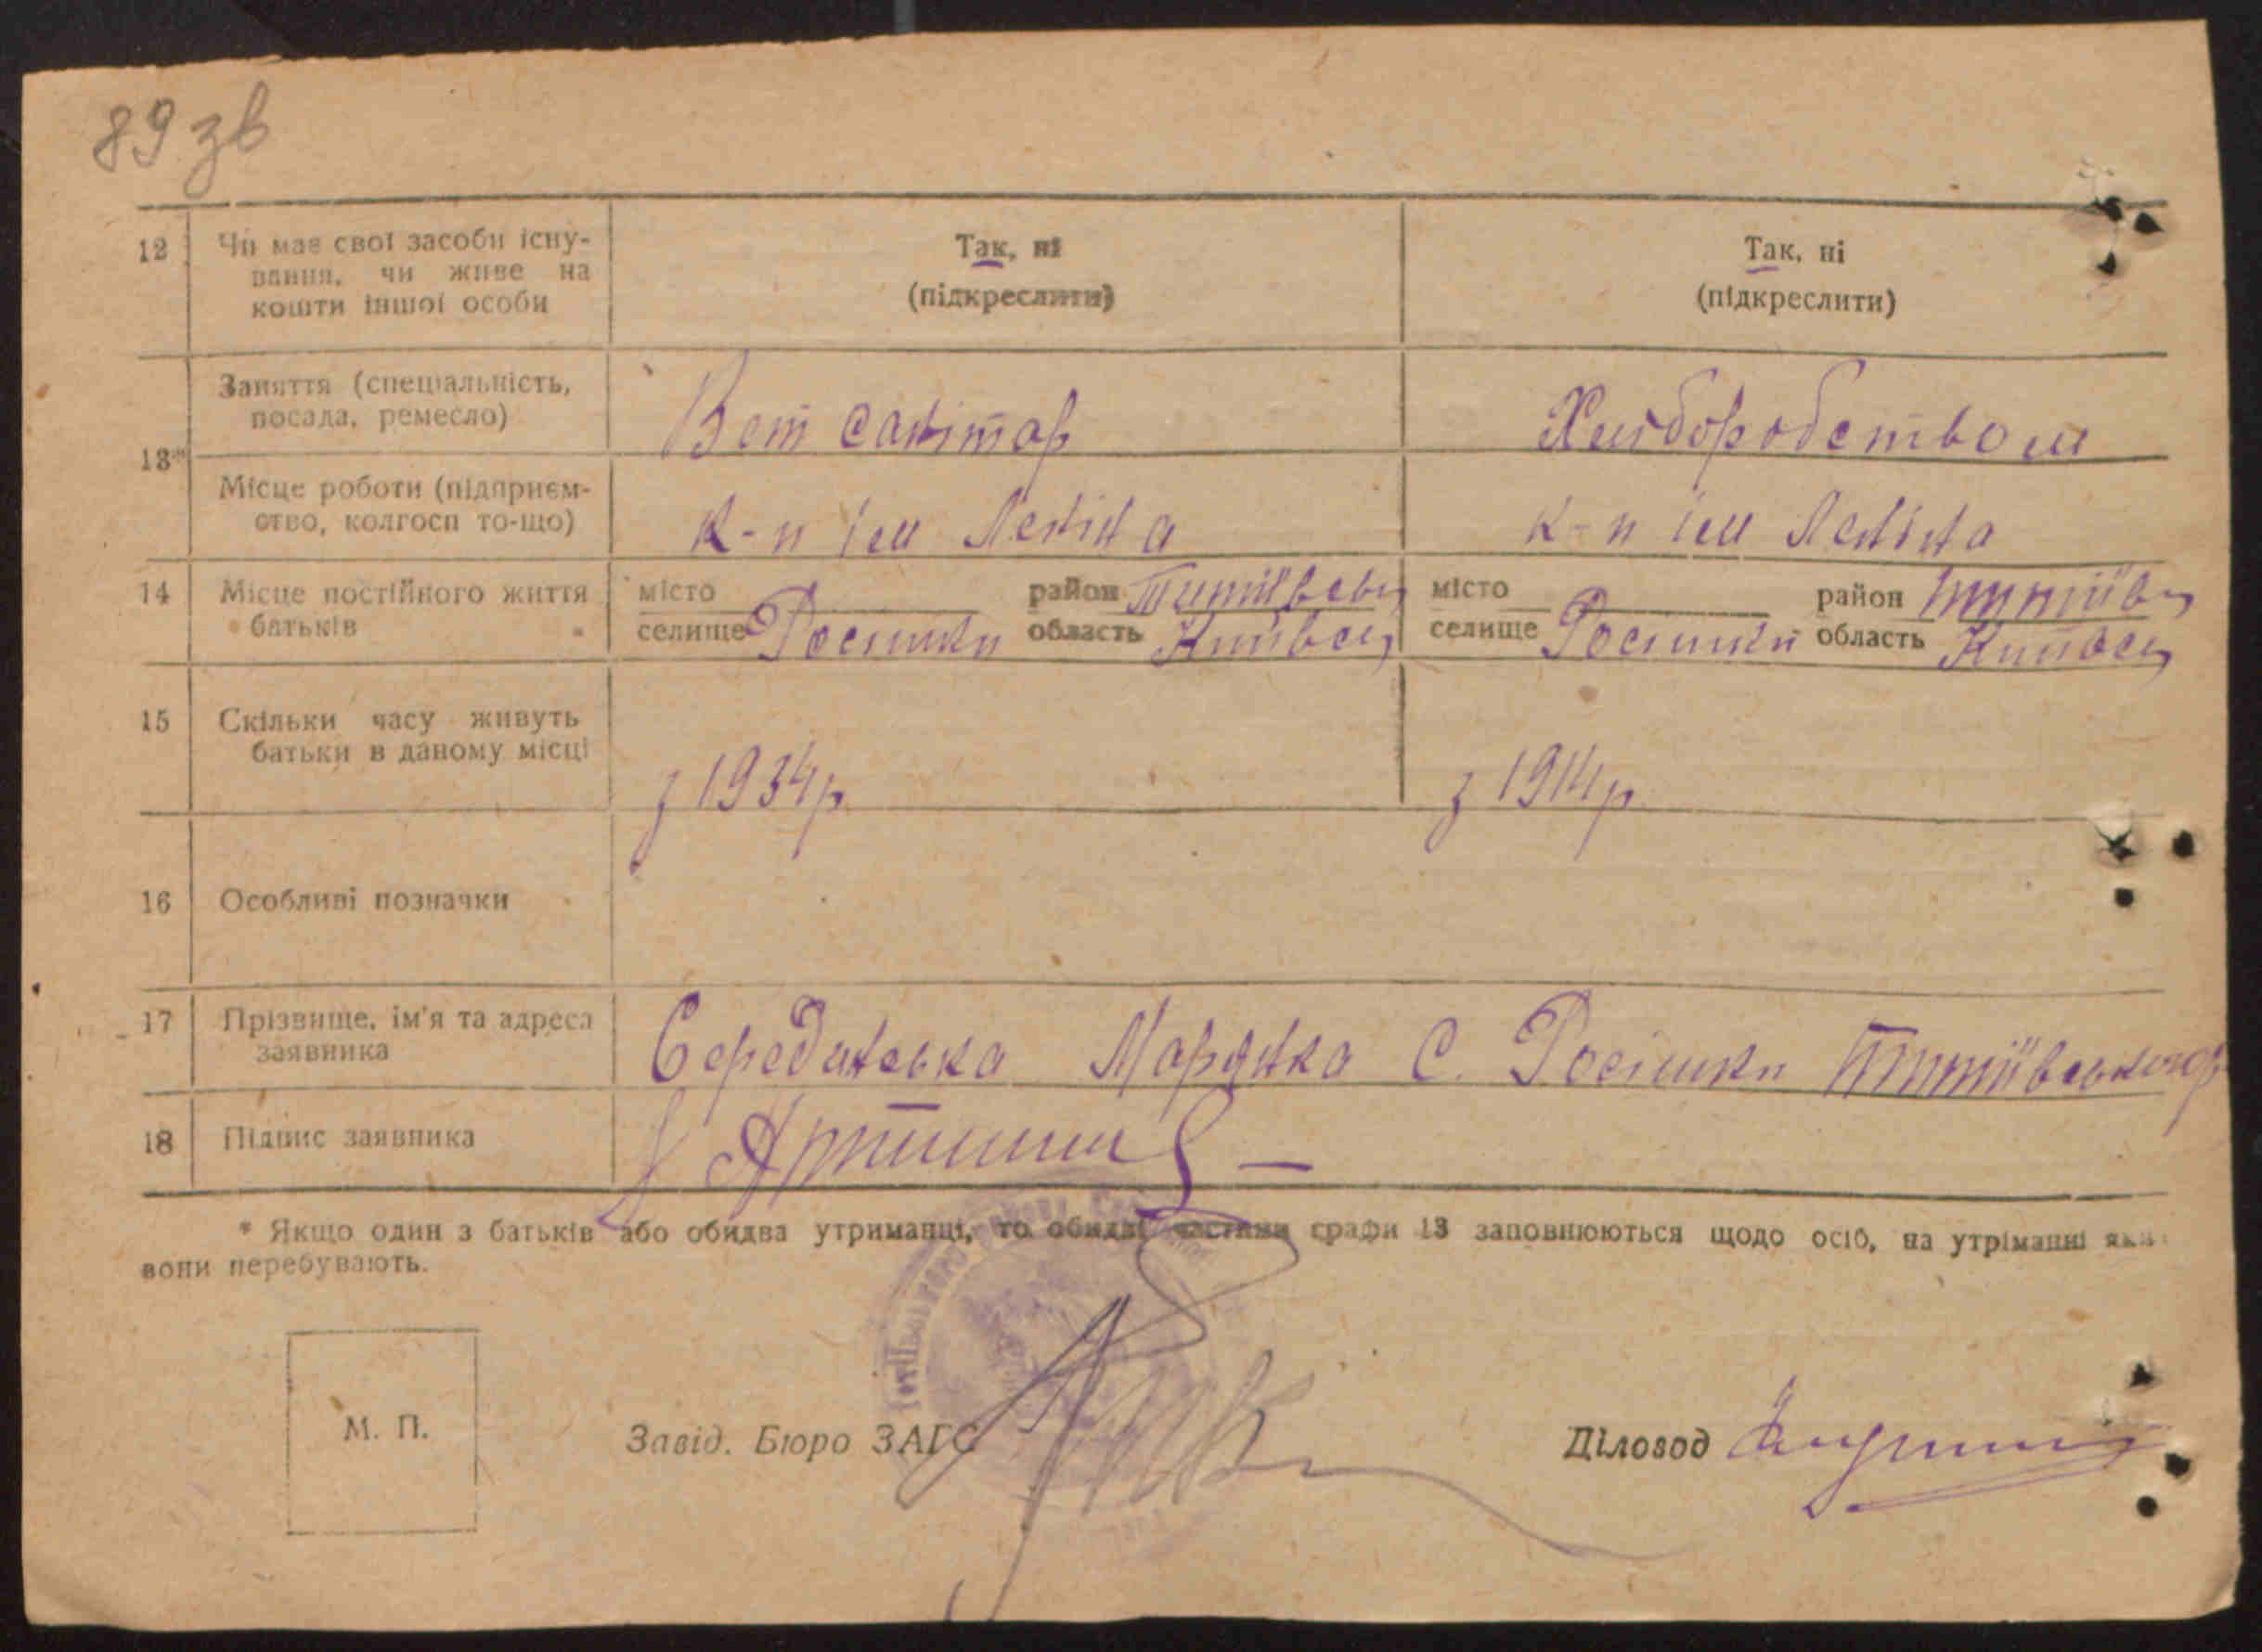 89 зв
12 Чи має свої засоби існу-
вання, чи живе на
кошти іншої особи
Так, ні
(підкреслити)
Так, ні
(підкреслити)
13*
Заняття (спеціальність,
посада, ремесло)
Вет санітар
Хліборобством
Місце роботи (підприєм-
ство, колгосп то-що)
к-п ім Леніна
к-п ім Леніна
14 Місце постійного життя
батьків
місто
селище Росішки
район Титіївськ
область Київськ
місто
селище Росішки
район Титіїв
область Київськ
15 Скільки часу живуть
батьки в даному місці
з 1934 р
з 1914 р
16 Особливі позначки
17 Прізвище, ім'я та адреса
заявника
Серединська Марянка С. Росішки Титіївського р
18 Підпис заявника
* Якщо один з батьків або обидва утриманці, то обидві частини графи 13 заповнюються щодо осіб, на утріманні яки
вони перебувають.
М. П.
Завід. Бюро ЗАГС
Діловод